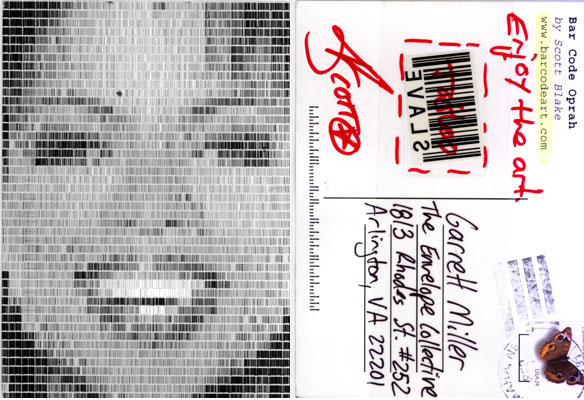 Bar Code Oprah
by Scott Blake
www.barcodeart.com
Enjoy the art.
SLAVE
Scott
Garrett Miller
The Envelope Collective
1813 Rhodes St. #252
Arlington, VA 22201